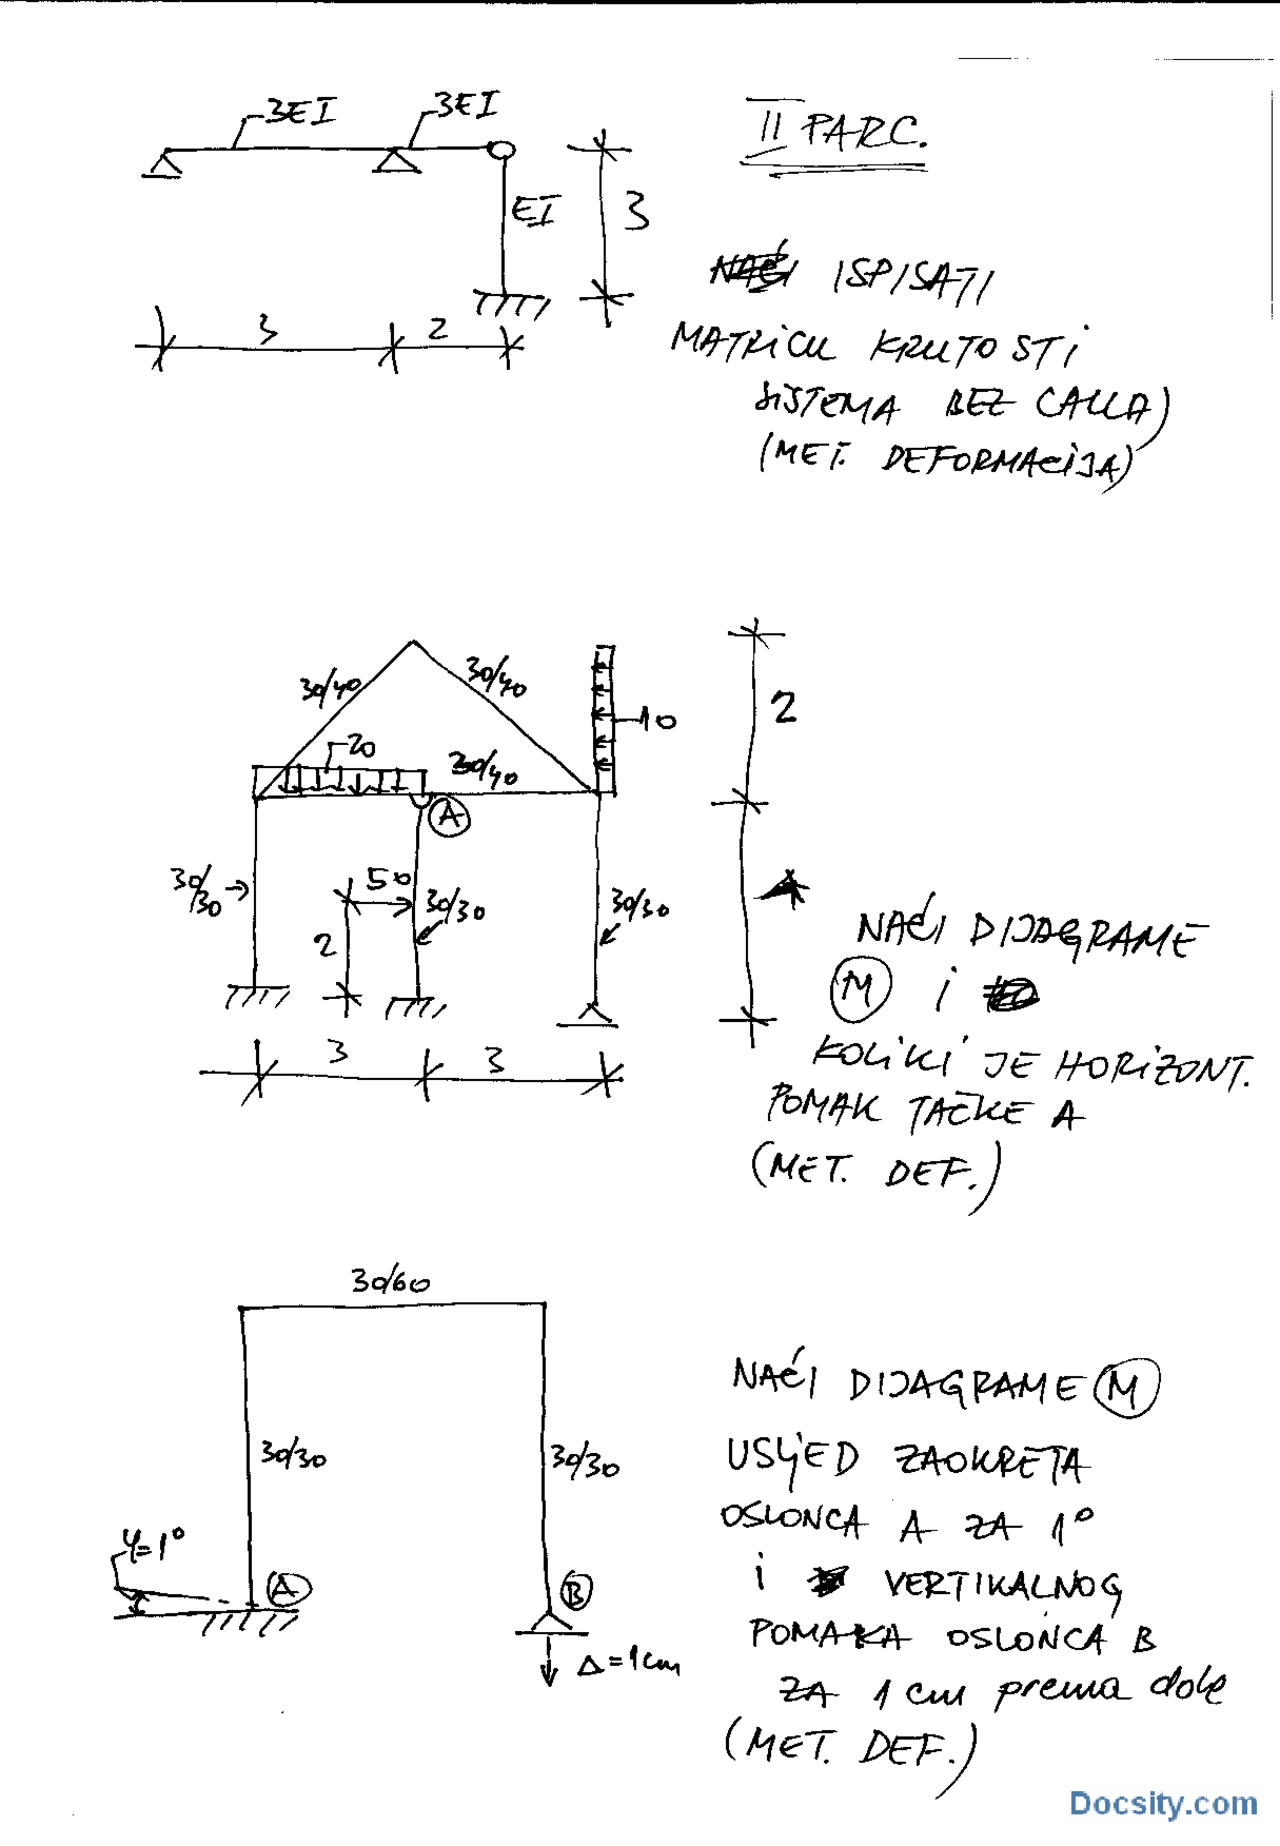 3EI
3EI
II PARC.
EI
3
3
2
ISPISATI
MATRICU KRUTOSTI
SISTEMA BEZ CALLA)
(MET. DEFORMACIJA)
30/40
30/40
20
30/40
10
2
A
30/30
50
30/30
30/30
2
4
3
3
NAĆI DIJAGRAME
M i
KOLIKI JE HORIZONT.
POMAK TAČKE A
(MET. DEF.)
30/60
30/30
30/30
φ=1°
A
B
Δ=1cm
NAĆI DIJAGRAME M
USLJED ZAOKRETA
OSLONCA A ZA 1°
i VERTIKALNOG
POMAKA OSLONCA B
ZA 1 cm prema dole
(MET. DEF.)
Docsity.com